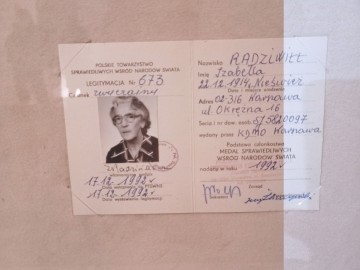 POLSKIE TOWARZYSTWO
SPRAWIEDLIWYCH WŚRÓD NARODÓW ŚWIATA
LEGITYMACJA Nr 673
Członek zwyczajny
17.12.1992 r
17.12.1992 r
Data wystawienia legitymacji
Nazwisko RADZIWIŁŁ
Imię Izabella
22.12.1914, Nieśwież
Data i miejsce urodzenia
Adres 02-316 Warszawa
ul. Okrężna 16
Seria i nr dow. osob.
wydany przez KDMO Warszawa
Podstawa członkostwa
MEDAL SPRAWIEDLIWYCH
WŚRÓD NARODÓW ŚWIATA
nadany w roku 1992 r.